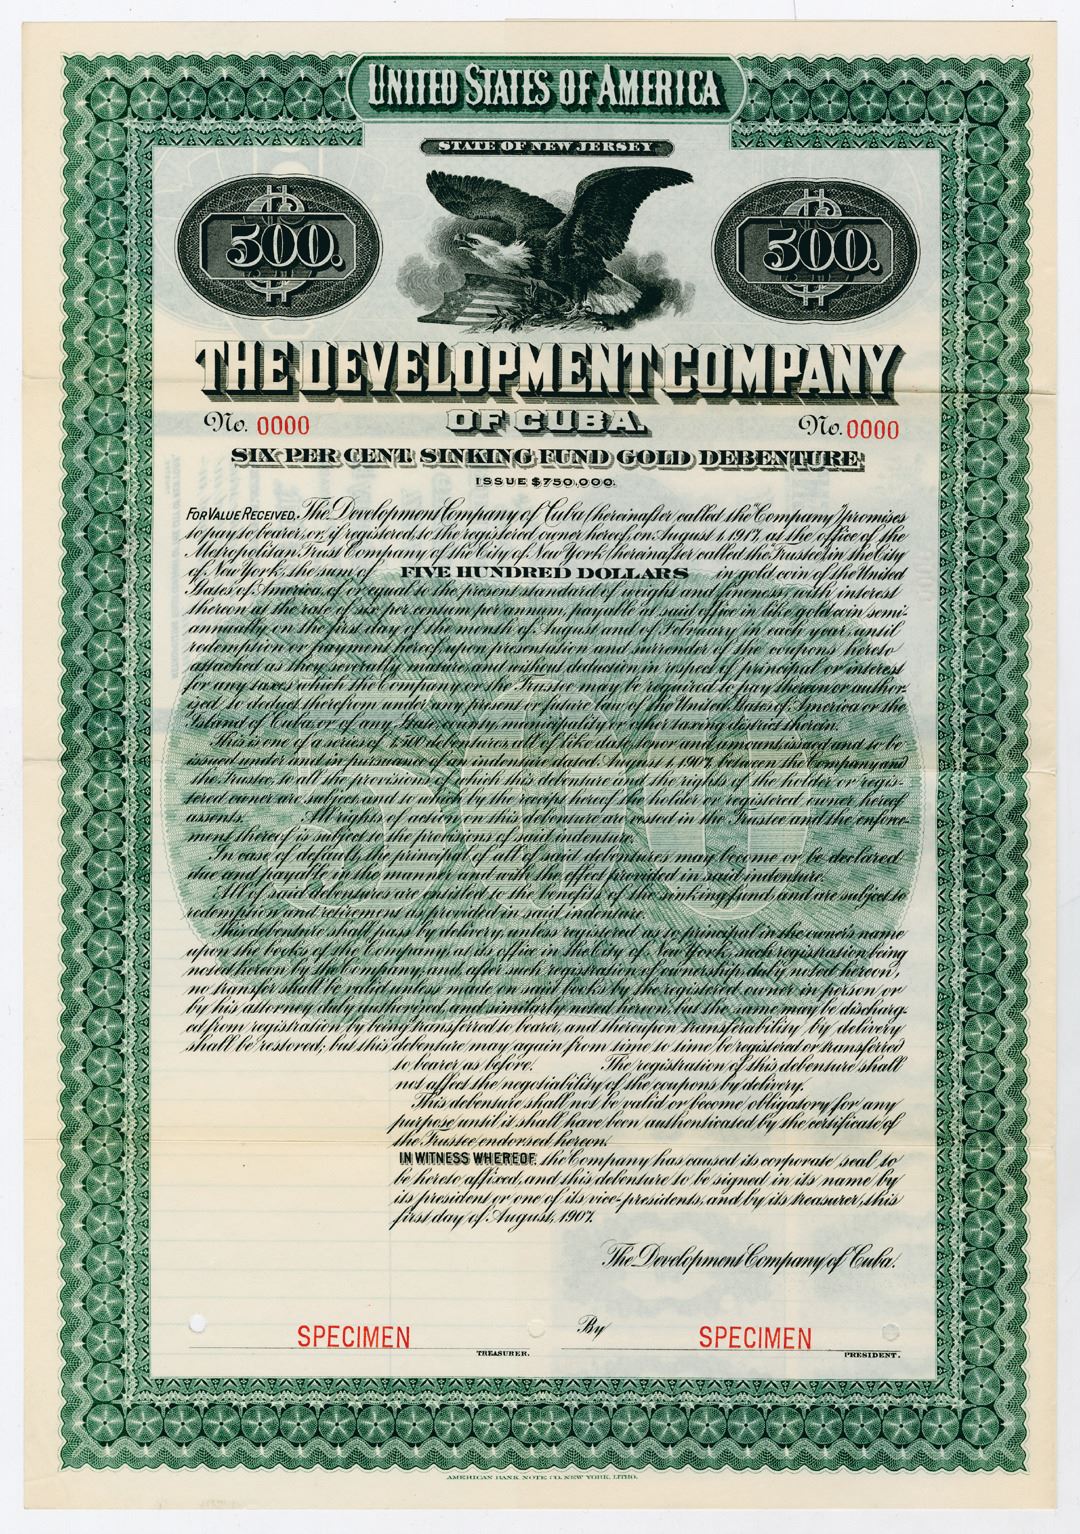 UNITED STATES OF AMERICA
STATE OF NEW JERSEY
500. 500.
THE DEVELOPMENT COMPANY
No. 0000 OF CUBA. No. 0000
SIX PER CENT. SINKING FUND GOLD DEBENTURE.
ISSUE $750,000.
FOR VALUE RECEIVED, The Development Company of Cuba (hereinafter called the "Company") promises
to pay to bearer, or, if registered, to the registered owner hereof, on August 1, 1917, at the office of the
Metropolitan Trust Company of the City of New York (hereinafter called the Trustee), in the City
of New York, the sum of FIVE HUNDRED DOLLARS in gold coin of the United
States of America, of or equal to the present standard of weight and fineness, with interest
thereon at the rate of six per centum per annum, payable at said office in like gold coin semi-
annually on the first day of the month of August and of February in each year, until
redemption or payment hereof, upon presentation and surrender of the coupons hereto
attached as they severally mature, and without deduction in respect of principal or interest
for any taxes which the Company or the Trustee may be required to pay thereon or author-
ized to deduct therefrom under any present or future law of the United States of America or the
Island of Cuba, or of any State, county, municipality or other taxing district therein.
This is one of a series of 1,500 debentures all of like date, tenor and amount, issued and to be
issued under and in pursuance of an indenture dated August 1, 1907, between the Company and
the Trustee, to all the provisions of which this debenture and the rights of the holder or regis-
tered owner are subject, and to which by the receipt hereof the holder or registered owner hereof
assents. All rights of action on this debenture are vested in the Trustee and the enforce-
ment thereof is subject to the provisions of said indenture.
In case of default, the principal of all of said debentures may become or be declared
due and payable in the manner and with the effect provided in said indenture.
All of said debentures are entitled to the benefits of the sinking fund, and are subject to
redemption and retirement as provided in said indenture.
This debenture shall pass by delivery, unless registered as to principal in the owner's name
upon the books of the Company, at its office in the City of New York, such registration being
noted hereon by the Company, and, after such registration of ownership duly noted hereon,
no transfer shall be valid unless made on said books by the registered owner in person or
by his attorney duly authorized, and similarly noted hereon, but the same may be discharg-
ed from registration by being transferred to bearer, and thereupon transferability by delivery
shall be restored; but this debenture may again from time to time be registered or transferred
to bearer as before. The registration of this debenture shall
not affect the negotiability of the coupons by delivery.
This debenture shall not be valid or become obligatory for any
purpose until it shall have been authenticated by the certificate of
the Trustee endorsed hereon.
IN WITNESS WHEREOF, the Company has caused its corporate seal to
be hereto affixed, and this debenture to be signed in its name by
its president or one of its vice-presidents, and by its treasurer, this
first day of August, 1907.
The Development Company of Cuba.
SPECIMEN By SPECIMEN
TREASURER. PRESIDENT.
AMERICAN BANK NOTE CO. NEW YORK, LITHO.